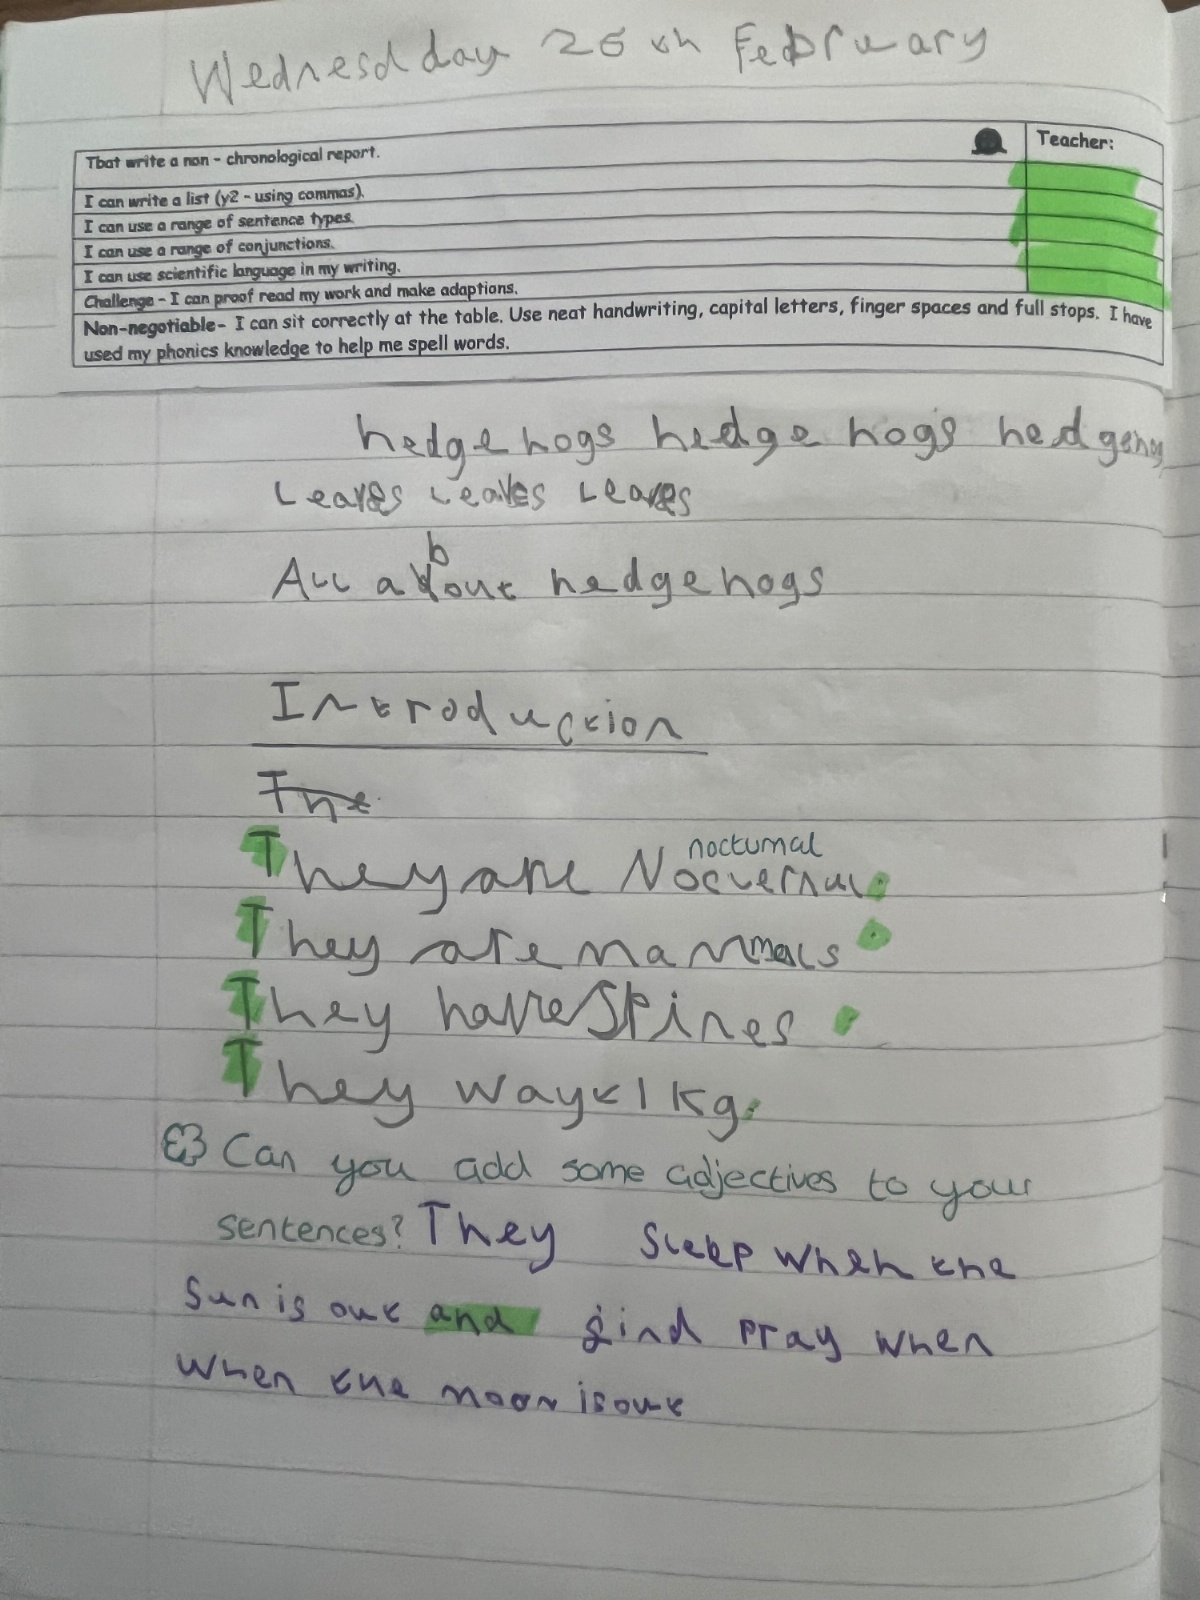 Wednesd day 26 th February
Tbat write a non - chronological report.
Teacher:
I can write a list (y2 - using commas).
I can use a range of sentence types.
I can use a range of conjunctions.
I can use scientific language in my writing.
Challenge - I can proof read my work and make adaptions.
Non-negotiable- I can sit correctly at the table. Use neat handwriting, capital letters, finger spaces and full stops. I have
used my phonics knowledge to help me spell words.
hedgehogs hedgehogs hedgehog
Leaves Leaves Leaves
b
All about hedgehogs
Introduction
The
nocturnal
They are Nocternul.
They are mammals.
They have Spines.
They way < 1 kg.
Can you add some adjectives to your
sentences? They sleep when the
Sun is out and find pray when
when the moon is out